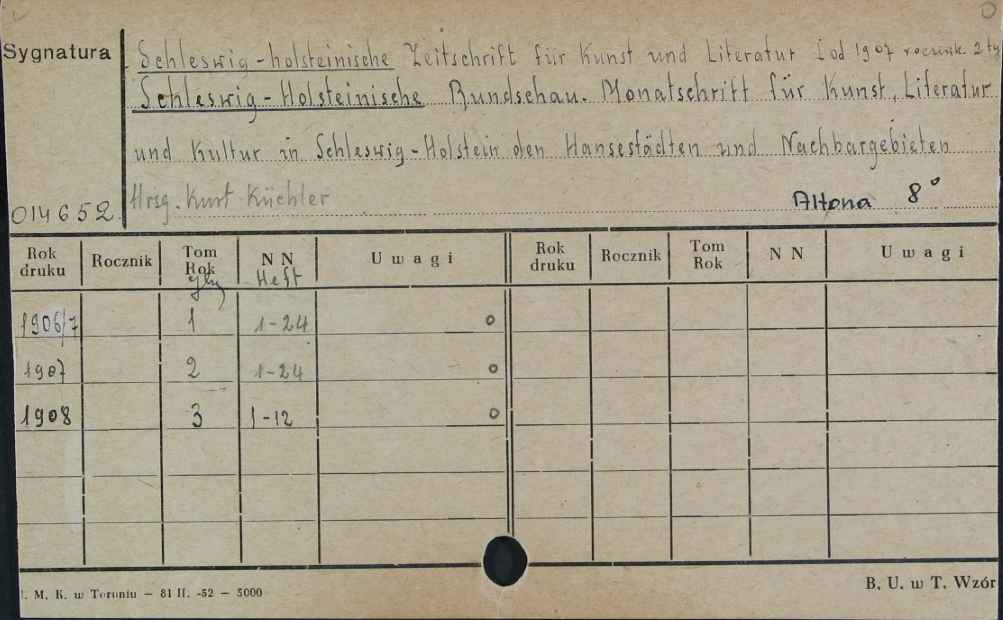 Sygnatura
Schleswig-holsteinische Zeitschrift für Kunst und Literatur od 1907 rocznik 2
Schleswig-Holsteinische Rundschau. Monatschrift für Kunst, Literatur
und Kultur in Schleswig-Holstein den Hansestädten und Nachbargebieten
Hrsg. Kurt Küchler
014652 Altona 8°
Rok druku Rocznik Tom Rok N N Uwagi Rok druku Rocznik Tom Rok N N Uwagi
Heft
1906/7 1 1-24 o
1907 2 1-24 o
1908 3 1-12 o
. M. K. w Toruniu — 81 II. -52 — 5000 B. U. w T. Wzór